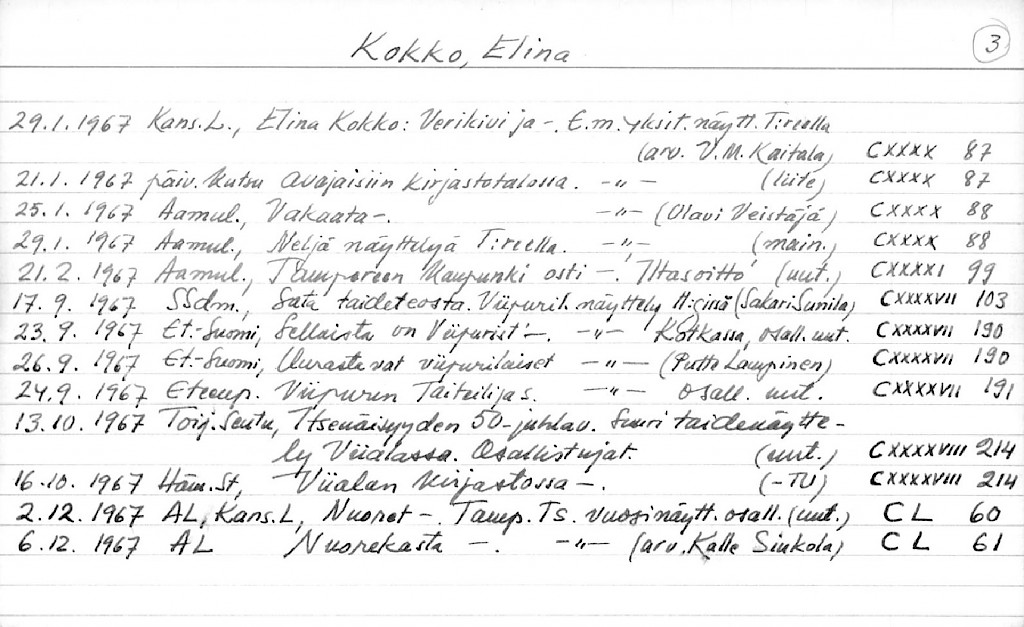 Kokko, Elina 3
29.1.1967 Kans.L., Elina Kokko: Verikivi ja -. E.m. yksit. näytt. T:reella
(arv. V.M. Kaitala) CXXXX 87
21.1.1967 päiv. kutsu avajaisiin kirjastotalossa. -"- (liite) CXXXX 87
25.1.1967 Aamul., Vakaata -. -"- (Olavi Veistäjä) CXXXX 88
29.1.1967 Aamul., Neljä näyttelyä T:reella. -"- (main.) CXXXX 88
21.2.1967 Aamul., Tampereen kaupunki osti -. 'Iltasoitto' (uut.) CXXXXI 99
17.9.1967 SSdm., Sata taideteosta. Viipuril. näyttely H:gissä (Sakari Saarila) CXXXXVII 103
23.9.1967 Et.-Suomi, Sellaista on Viipurist'-. -"- Kotkassa, osall. uut. CXXXXVII 190
26.9.1967 Et.-Suomi, Uurastavat viipurilaiset -"- (Lampinen) CXXXXVII 190
24.9.1967 Eteenp. Viipurin Taiteilijas. -"- osall. uut. CXXXXVII 191
13.10.1967 Toij. Seutu, Itsenäisyyden 50-juhlav. Suuri taidenäytte-
ly Viialassa. Osallistujat. (uut.) CXXXXVIII 214
16.10.1967 Häm.St, Viialan kirjastossa -. (-TU) CXXXXVIII 214
2.12.1967 AL, Kans.L, Nuoret -. Tamp.Ts. vuosinäytt. osall. (uut.) CL 60
6.12.1967 AL Nuorekasta -. -"- (arv. Kalle Sinkola) CL 61